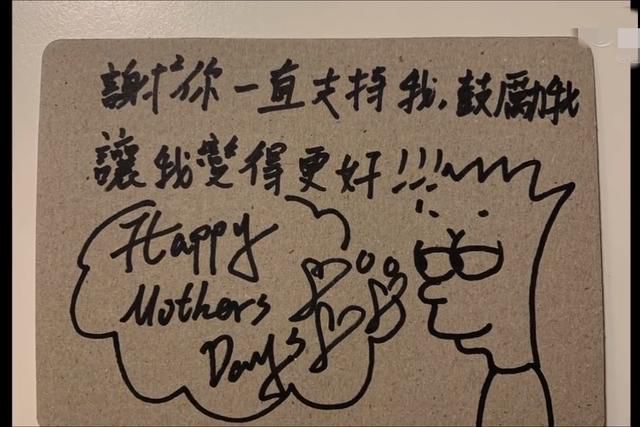 謝²你一直支持我,鼓勵我
讓我變得更好!!!
Happy
Mothers
Days